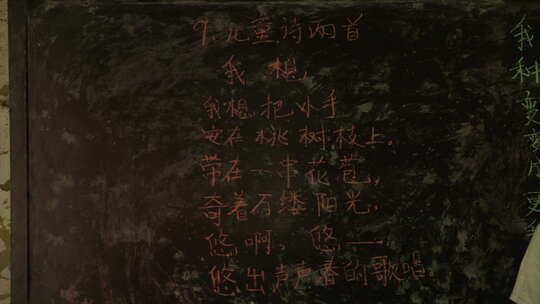 9.儿童诗两首
我想,
我想,把小手
安在桃树枝上。
带在一串花苞,
奇着万缕阳光,
悠啊,悠——
悠出声声春的歌唱。
我
种
变
变
成
更